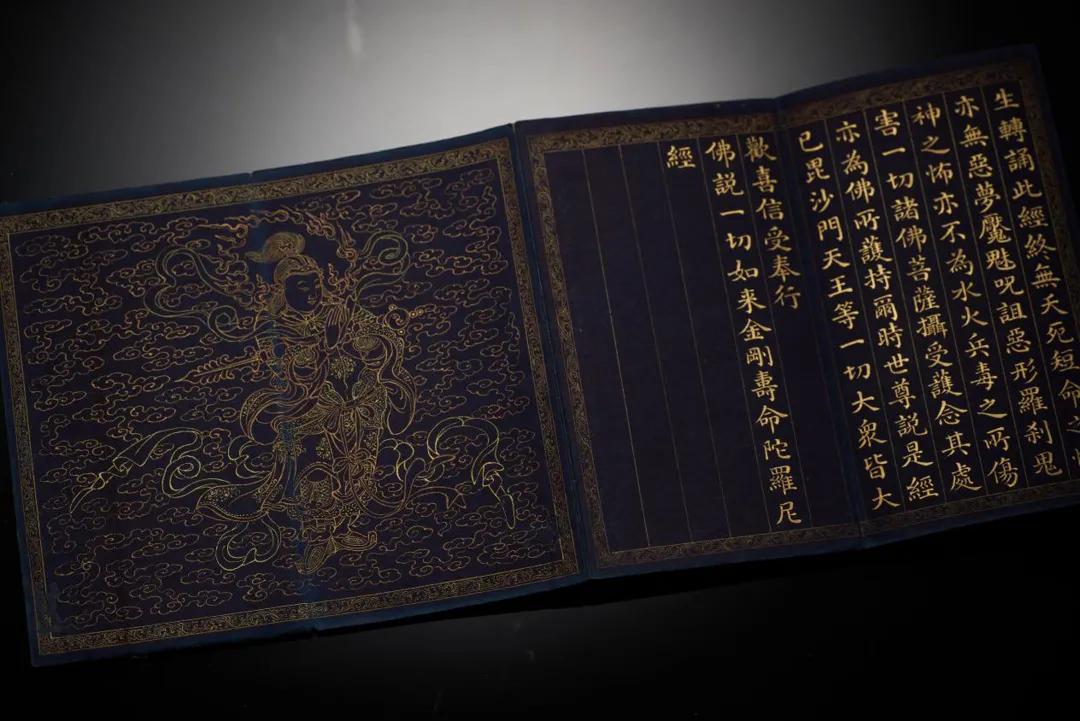 生轉誦此經終無夭死短命之
亦無惡夢魘魅呪詛惡形羅刹鬼
神之怖亦不為水火兵毒之所傷
害一切諸佛菩薩攝受護念其處
亦為佛所護持爾時世尊說是經
已毘沙門天王等一切大衆皆大
歡喜信受奉行
佛說一切如来金剛壽命陀羅尼
經